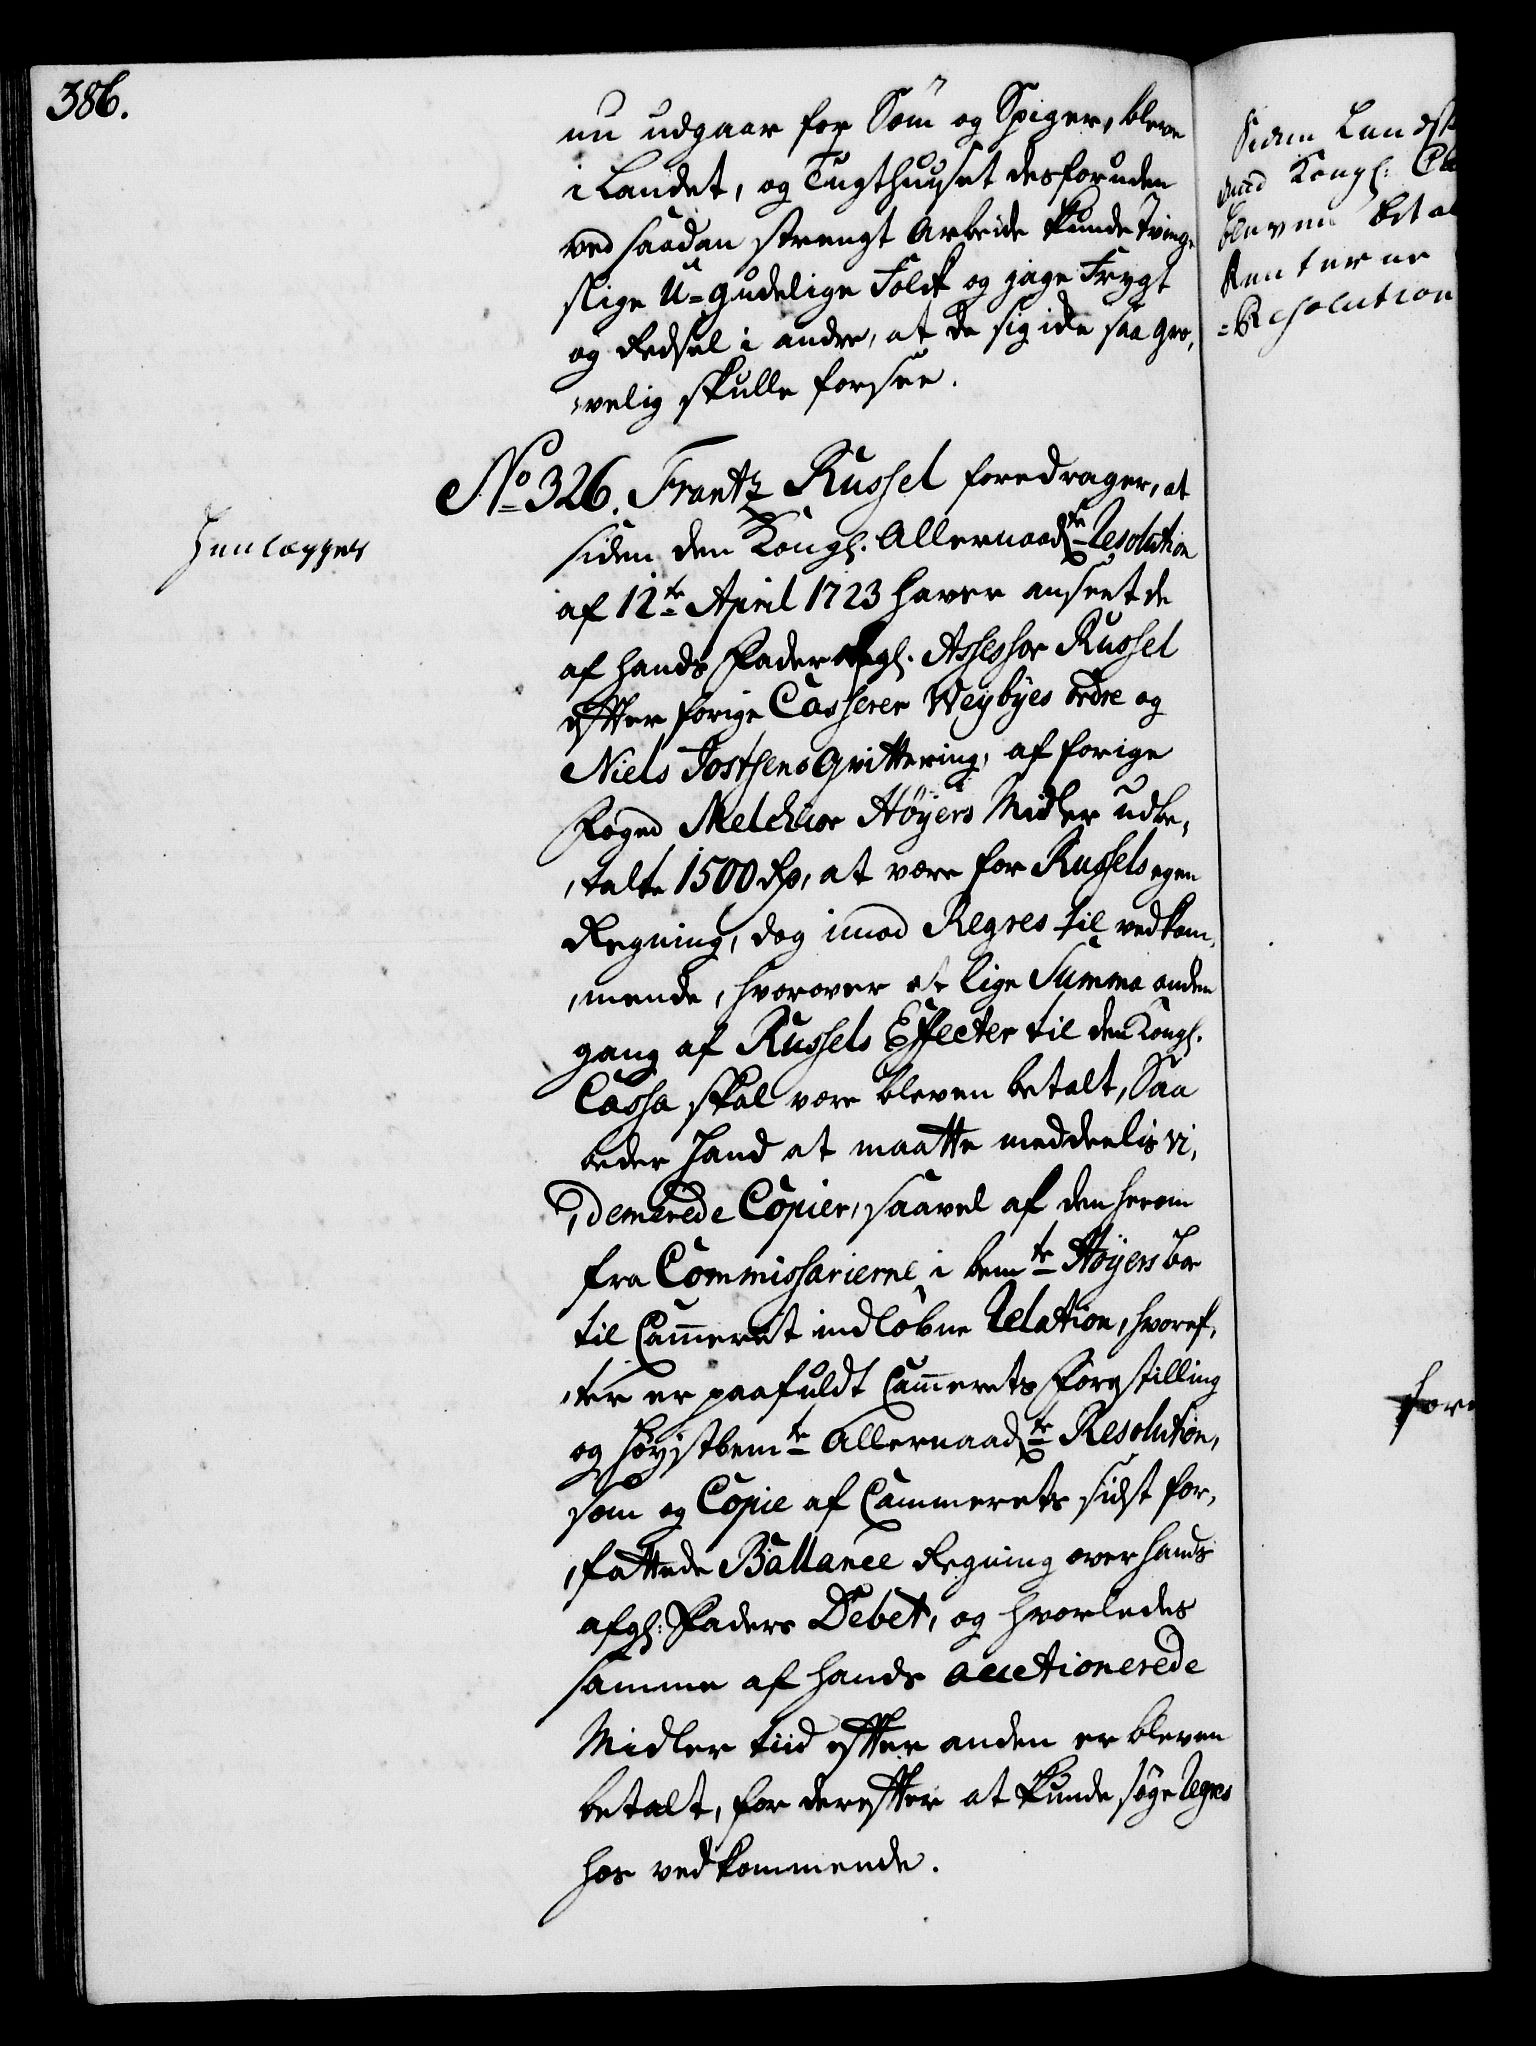 386.
nu udgaar for Söm og Spiger, bleve
i Landet, og Tugthuuset desforuden
ved saadan strengt Arbeide kunde tvinge
slige U=gudelige Folck og jage Frygt
og Redsel i andre, at de sig icke saa gro,
,velig skulle forsee.
No 326. Frantz Russel foredrager, at
siden den Kongl. Allernaadste Resolution
af 12te April 1723 haver anseet de
af hands Fader Afgl. Assessor Russel
efter forige Casserer Weybyes ordre og
Niels Jostsens Qvittering, af forige
Foged Melchior Höyers Midler udbe,
,talte 1500 Rdr, at være for Russels egen
Regning, dog imod Regres til vedkom,
,mende, hvorover et lige Summa anden
gang af Russels Effecter til den Kongl.
Cassa skal være bleven betalt, Saa
beder Hand at maatte meddeelis vi,
,demerede Copier, saavel af den herom
fra Commissarierne i bemte Höyers Boe
til Cammeret indlöbne Relation, hvoref,
,ter er paafuldt Cammerets Forestilling
og Höystbemte Allernaadste Resolution,
som og Copie af Cammerets sidst for,
,fattede Ballance Regning over hands
afgl: Faders Debet, og hvorledes
samme af hands auctionerede
Midler tiid efter anden er bleven
betalt, for derefter at kunde söge Regres
hos vedkommende.
Henlægges
Kongl:
bleven
Renterne
=Resolution